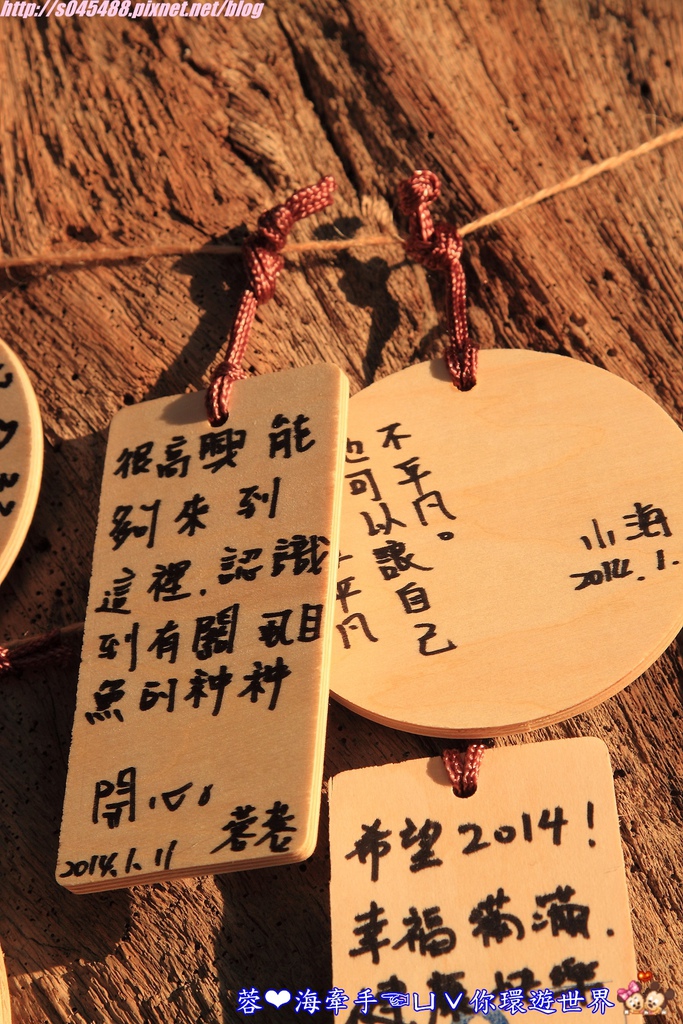 http://s045488.pixnet.net/blog
很高興 能
夠來到
這裡.認識
到有關虱目
魚的种种
開心
蓉蓉
2014.1.11
不平凡。
也可以讓自己
平凡
小海
2014.1.
希望2014!
幸福滿滿.
蓉❤海牽手☜ㄩㄨ你環遊世界